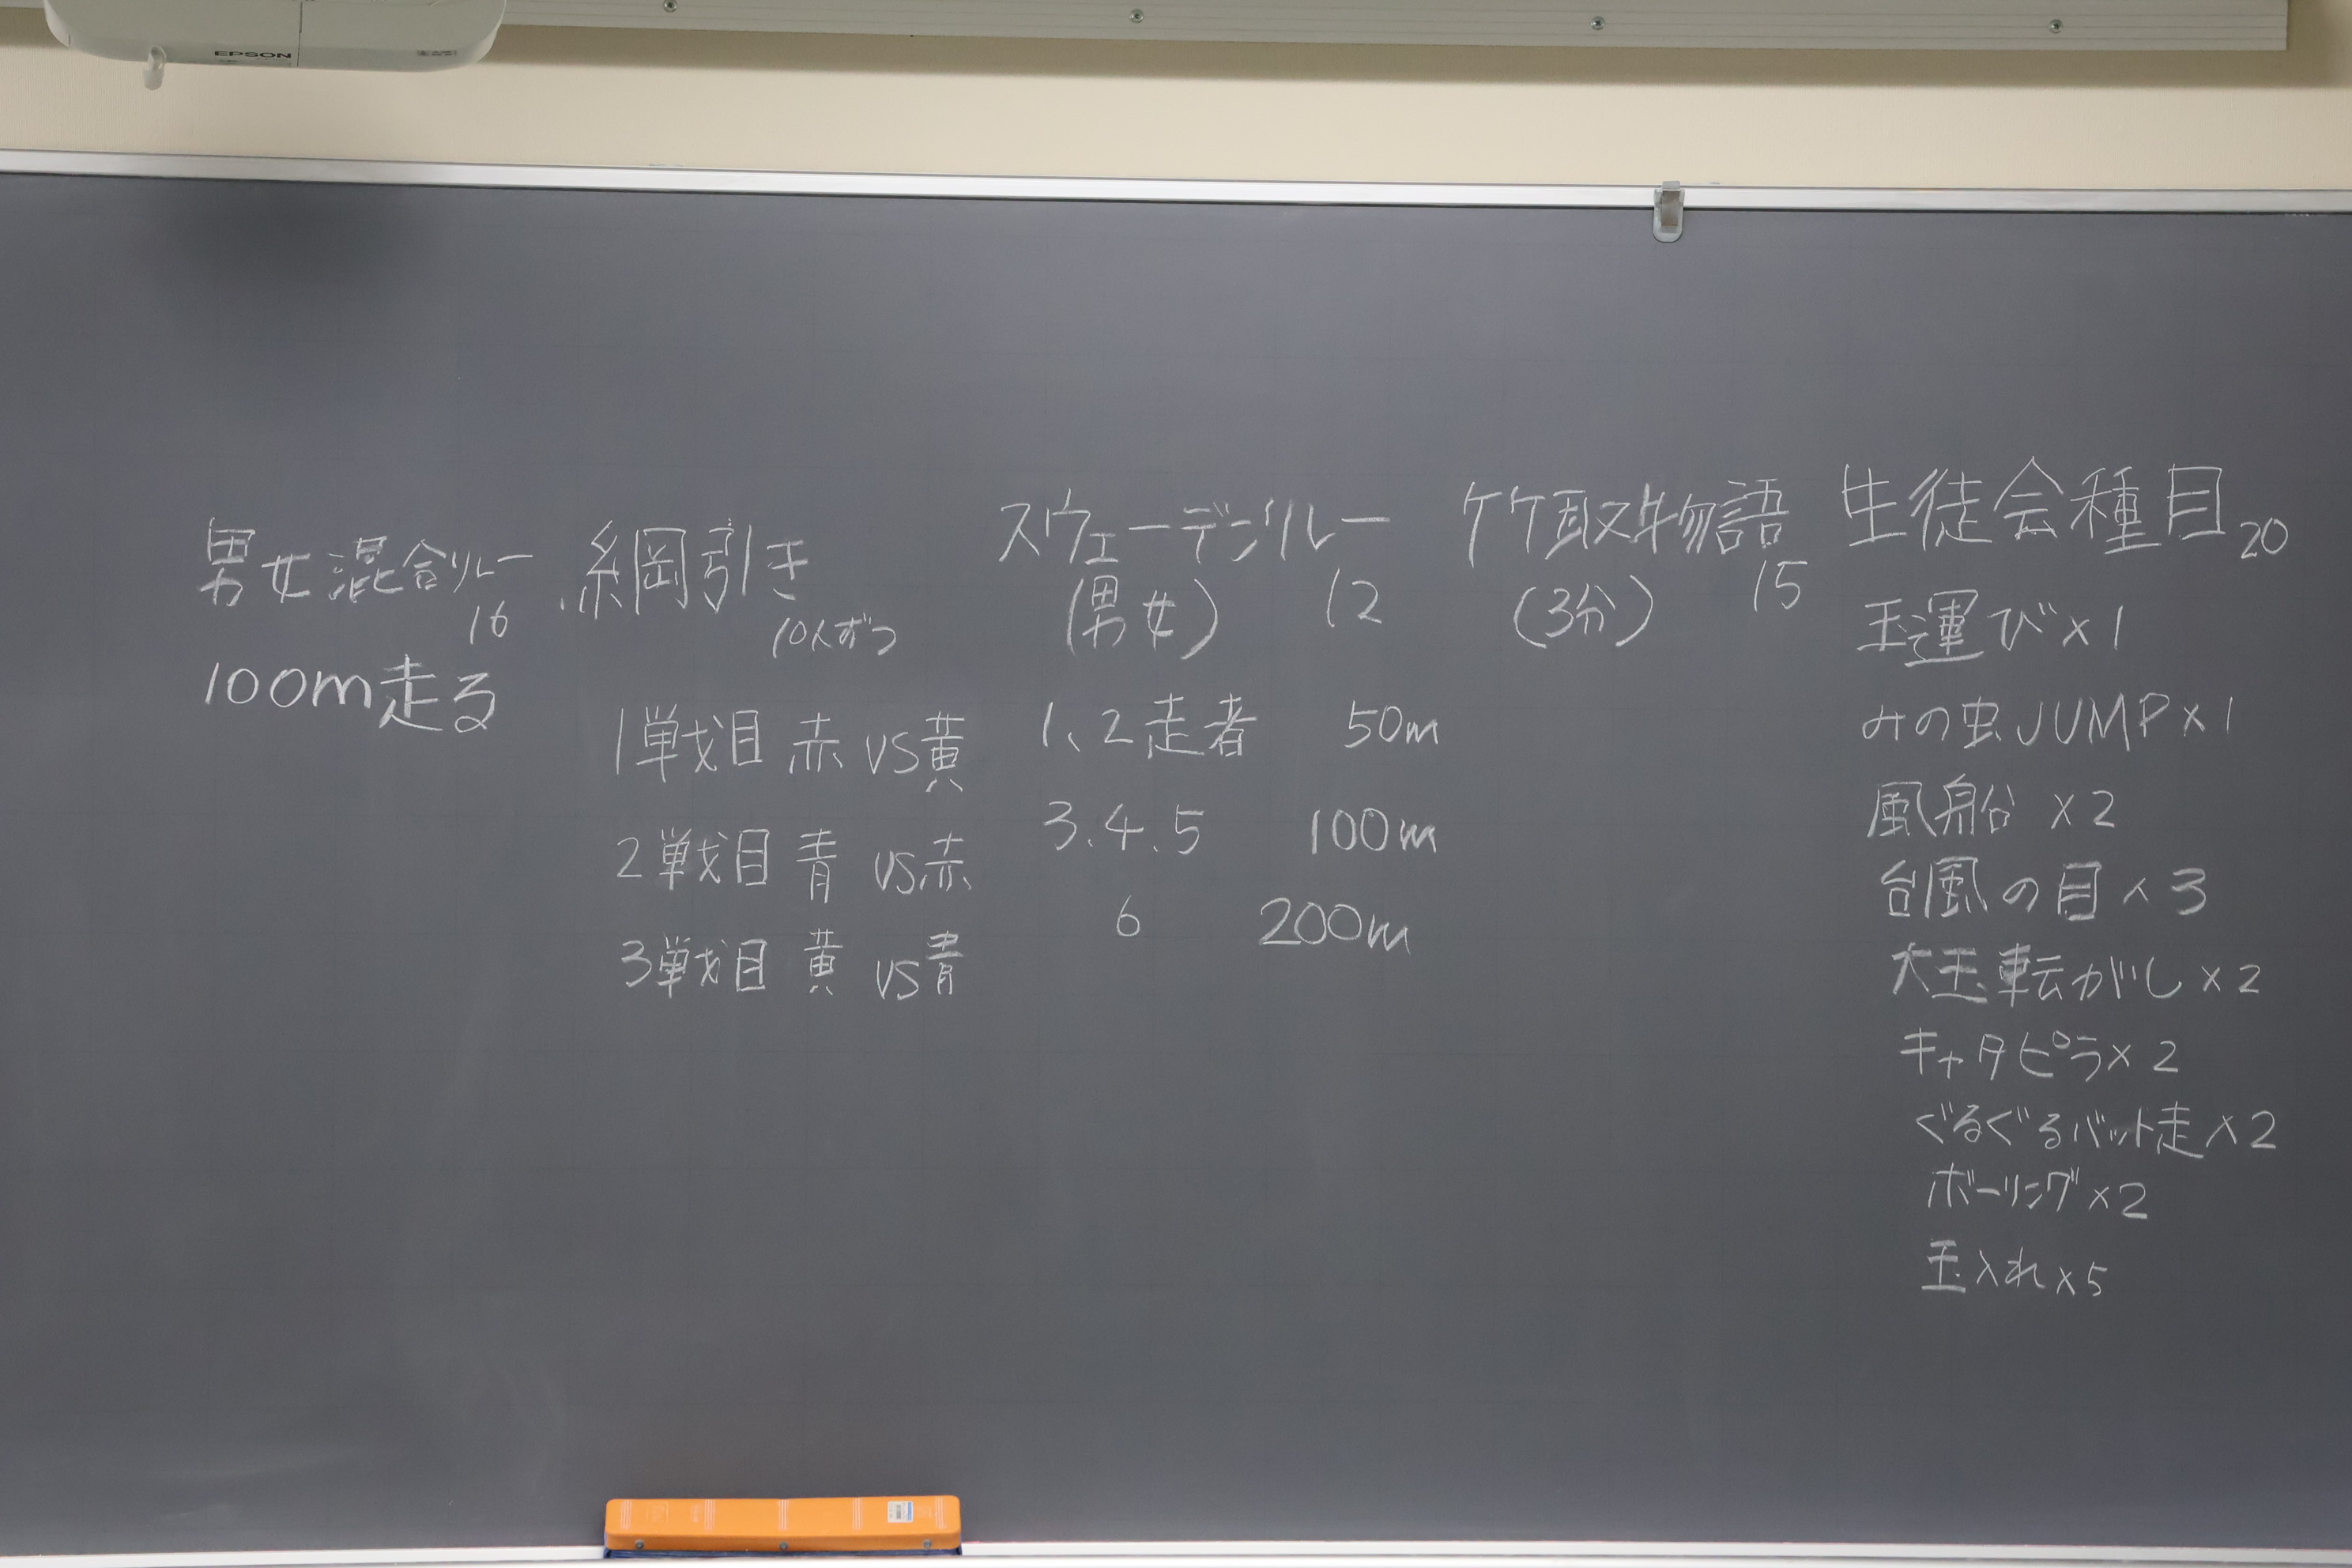 EPSON
男女混合リレー
16
100m走る
綱引き
10人ずつ
1戦目 赤 VS 黄
2戦目 青 VS 赤
3戦目 黄 VS 青
スウェーデンリレー
(男女) 12
1、2走者 50m
3.4.5 100m
6 200m
竹取物語
(3分) 15
生徒会種目 20
玉運び×1
みの虫JUMP×1
風船 ×2
台風の目×3
大玉転がし×2
キャタピラ×2
ぐるぐるバット走×2
ボーリング×2
玉入れ×5